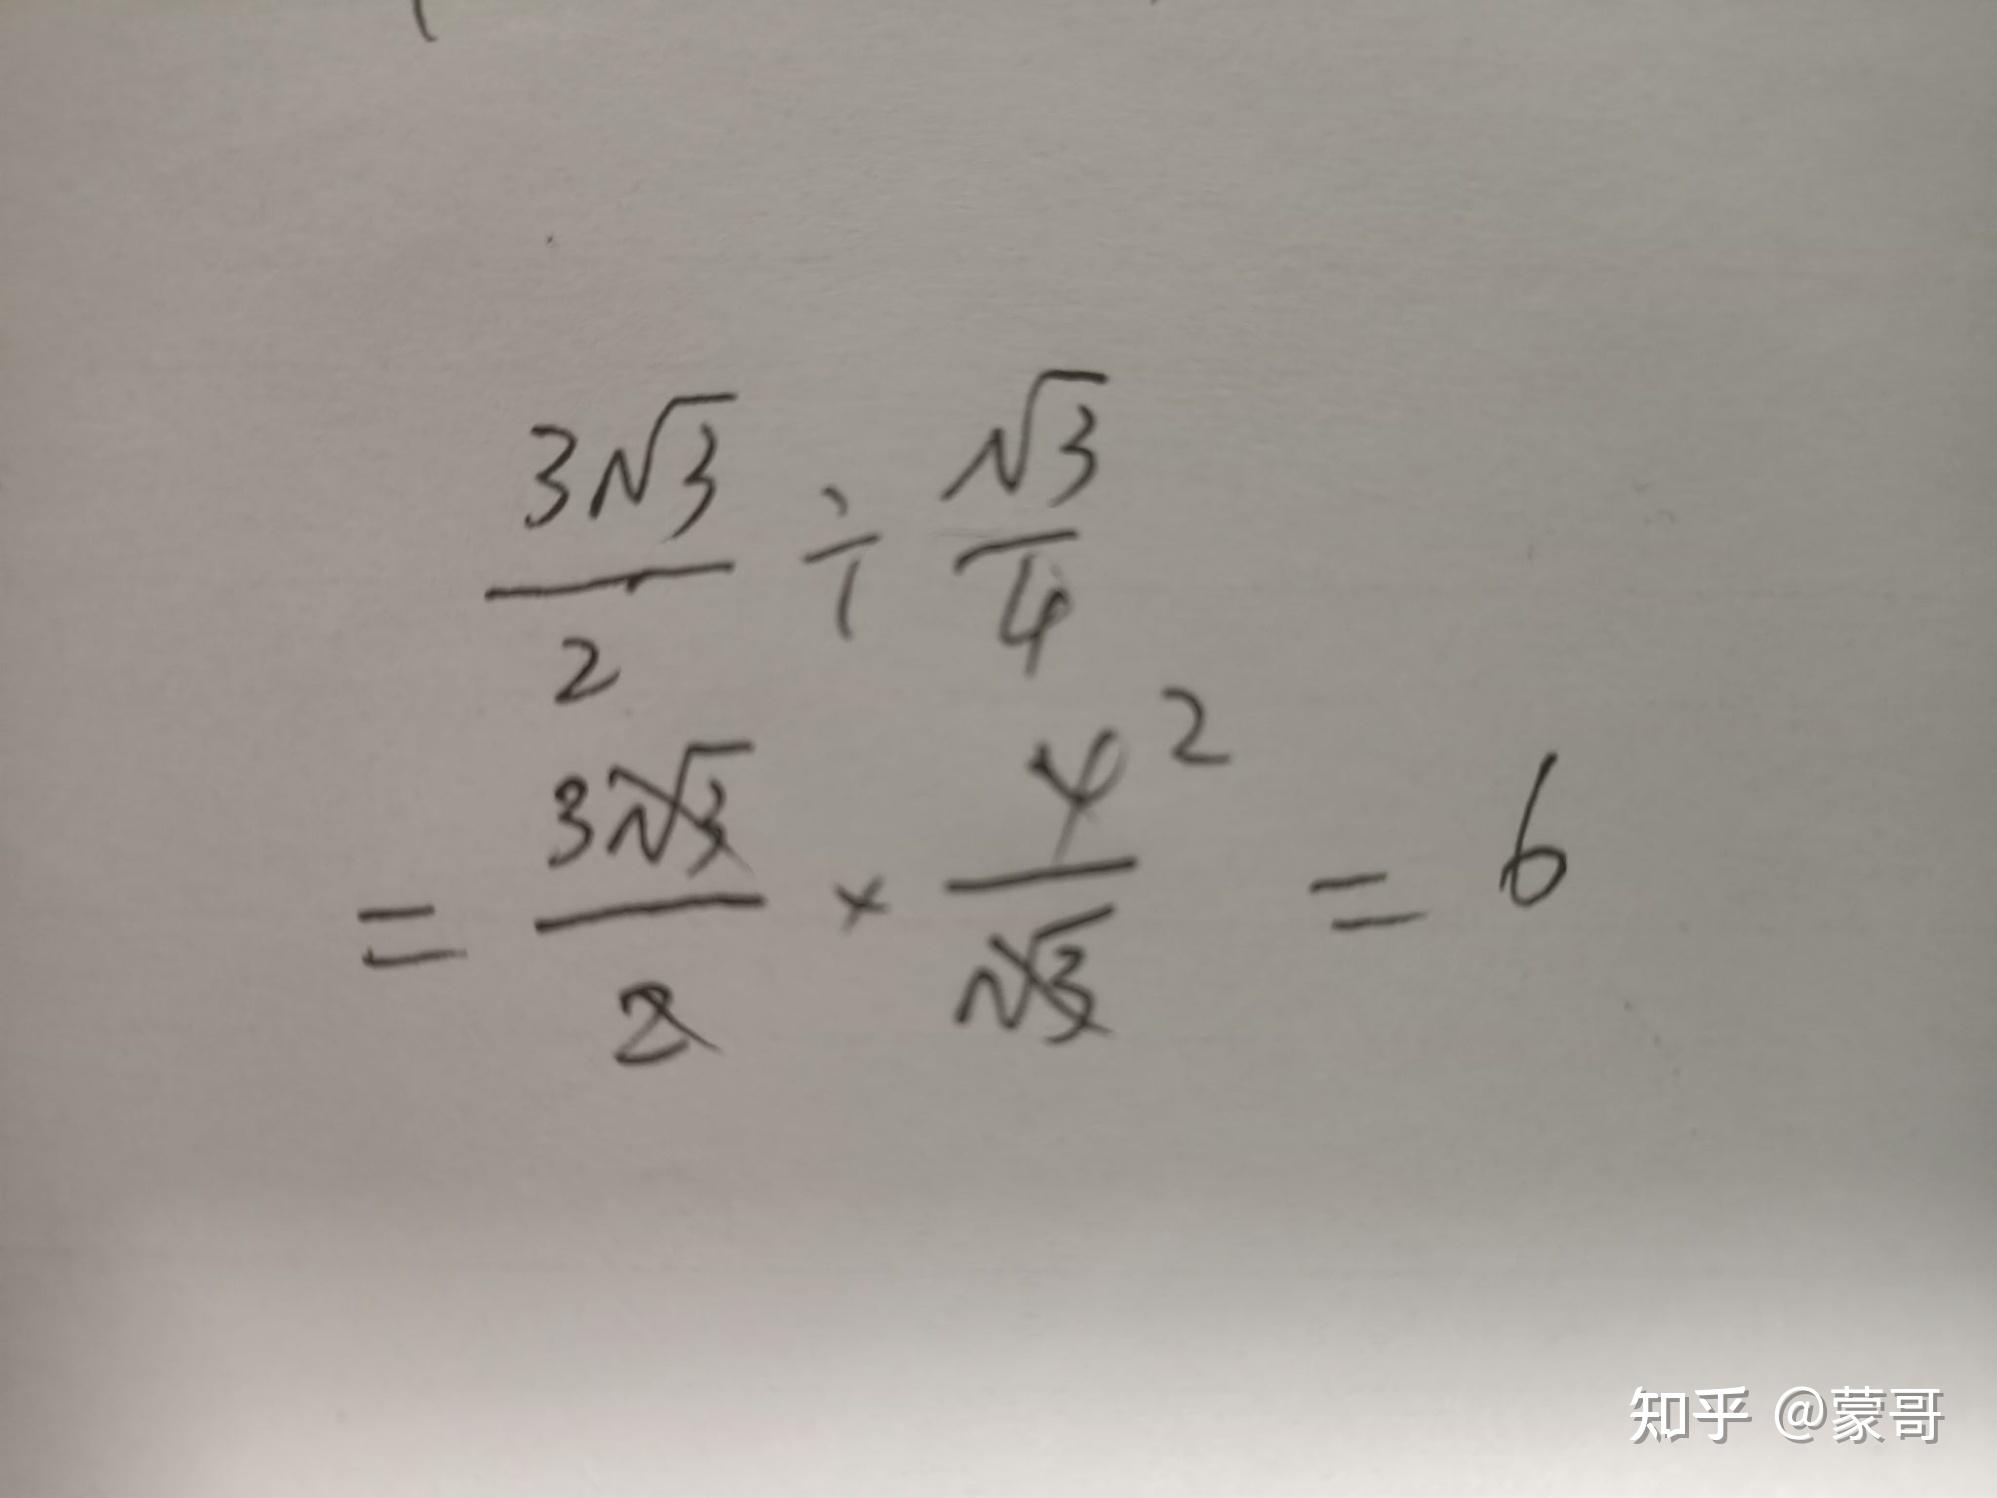 3√3/2 ÷ √3/4
= 3√3/2 × 4/√3 2 = 6
知乎 @蒙哥